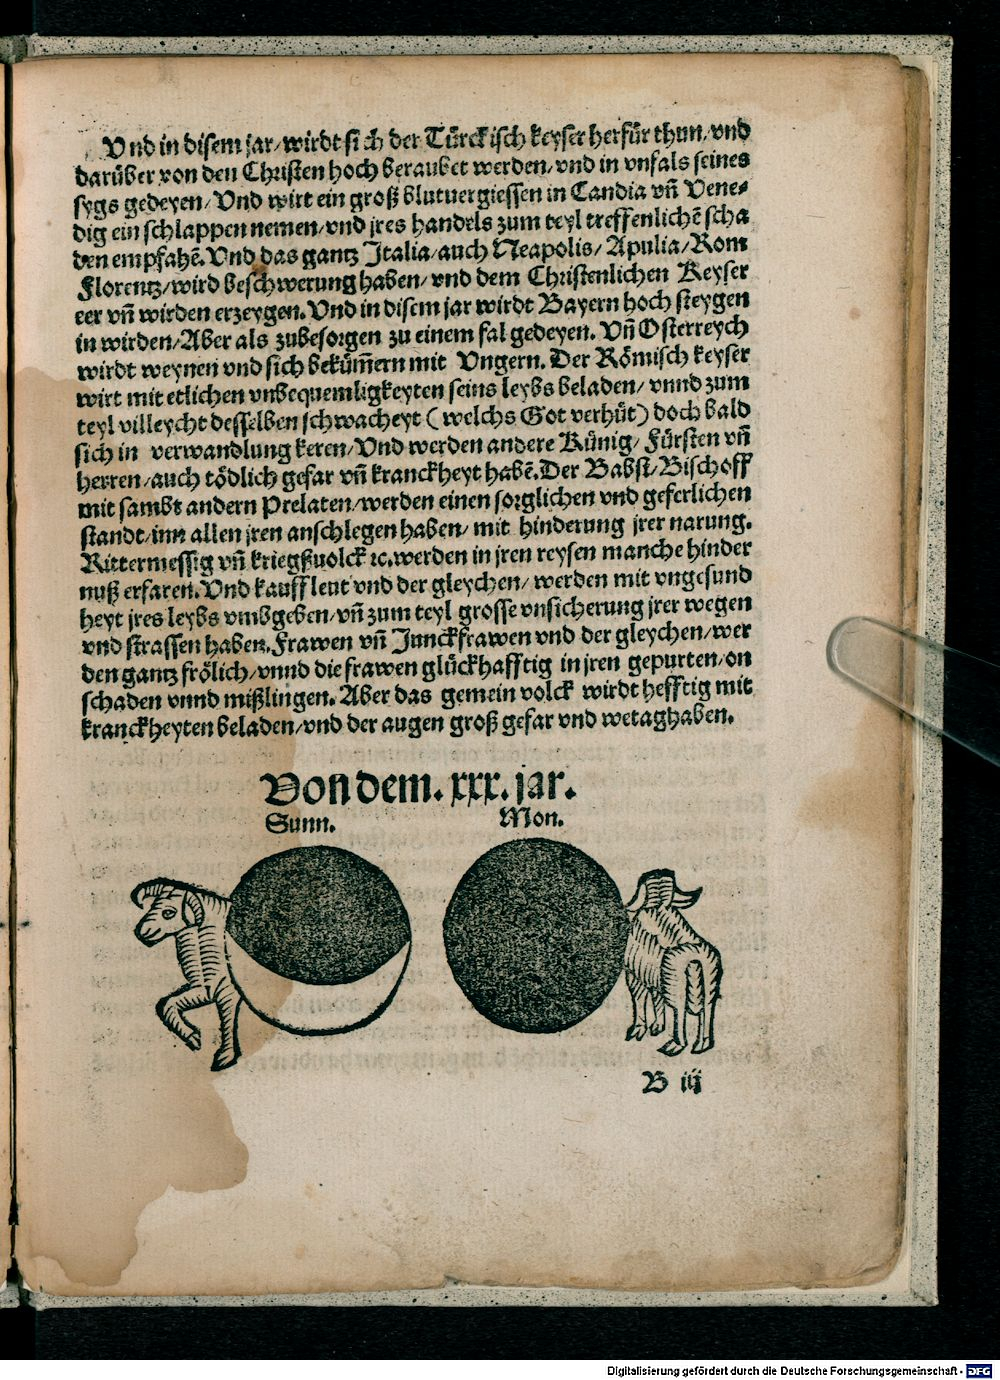 Vnd in disem jar/wirdt sich der Türckisch keyser herfür thun/vnd
darüber von den Christen hoch beraubet werden/vnd in vnfals seines
sygs gedeyen/Vnd wirt ein groß blutuergiessen in Candia vñ Vene-
dig ein schlappen nemen/vnd jres handels zum teyl treffenlichē scha
den empfahē. Vnd das gantz Italia/auch Neapolis/Apulia/Rom
Florentz/wird beschwerung haben/vnd dem Christenlichen Keyser
eer vñ wirden erzeygen. Vnd in disem jar wirdt Bayern hoch steygen
in wirden/Aber als zubesorgen zu einem fal gedeyen. Vñ Osterreych
wirdt weynen vnd sich bekūmern mit Vngern. Der Römisch keyser
wirt mit etlichen vnbequemligkeyten seins leybs beladen/vnnd zum
teyl villeycht desselben schwacheyt (welchs Got verhüt) doch bald
sich in verwandlung keren/Vnd werden andere Künig/Fürsten vñ
herren/auch tödlich gefar vñ kranckheyt habē. Der Babst/Bischoff
mit sambt andern Prelaten/werden einen sorglichen vnd geferlichen
standt/inn allen jren anschlegen haben/mit hinderung jrer narung.
Rittermessig vñ kriegßuolck ꝛc. werden in jren reysen manche hinder
nuß erfaren. Vnd kauffleut vnd der gleychen/werden mit vngesund
heyt jres leybs vmbgeben/vñ zum teyl grosse vnsicherung jrer wegen
vnd strassen haben. Frawen vñ Junckfrawen vnd der gleychen/wer
den gantz frölich/vnnd die frawen glückhafftig in jren gepurten/on
schaden vnnd mißlingen. Aber das gemein volck wirdt hefftig mit
kranckheyten beladen/vnd der augen groß gefar vnd wetag haben.
Von dem. xxx. jar.
Sunn. Mon.
B iij
Digitalisierung gefördert durch die Deutsche Forschungsgemeinschaft - DFG